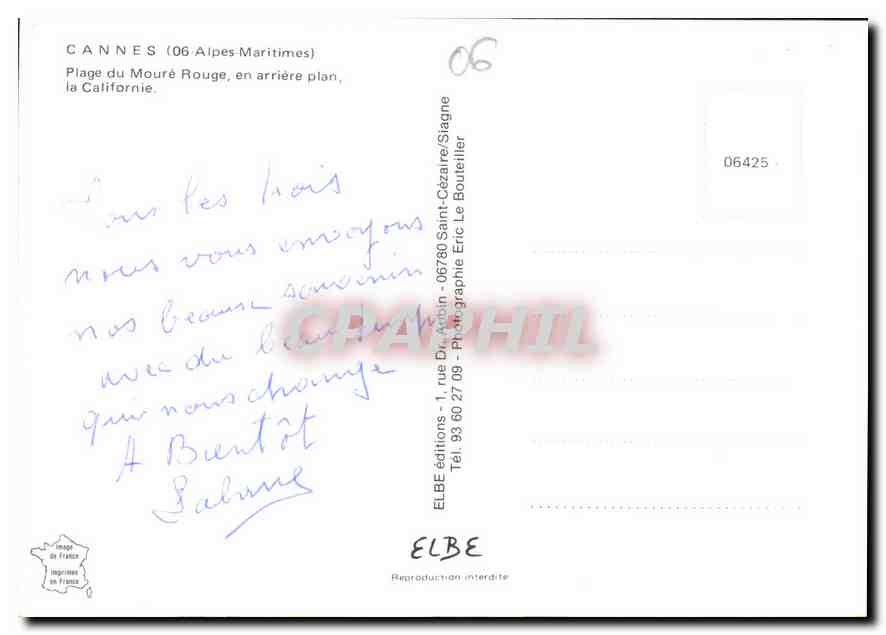 CANNES (06 Alpes-Maritimes)
Plage du Mouré Rouge, en arrière plan,
la Californie.
06
06425
Tous les trois
nous vous envoyons
nos beaux souvenirs
avec du beau temps
qui nous change
A Bientôt
ELBE éditions - 1, rue Dr. Aubin - 06780 Saint-Cézaire/Siagne
Tél. 93 60 27 09 - Photographie Eric Le Bouteiller
CPAPHIL
Image
de France
Imprimée
en France
ELBE
Reproduction interdite